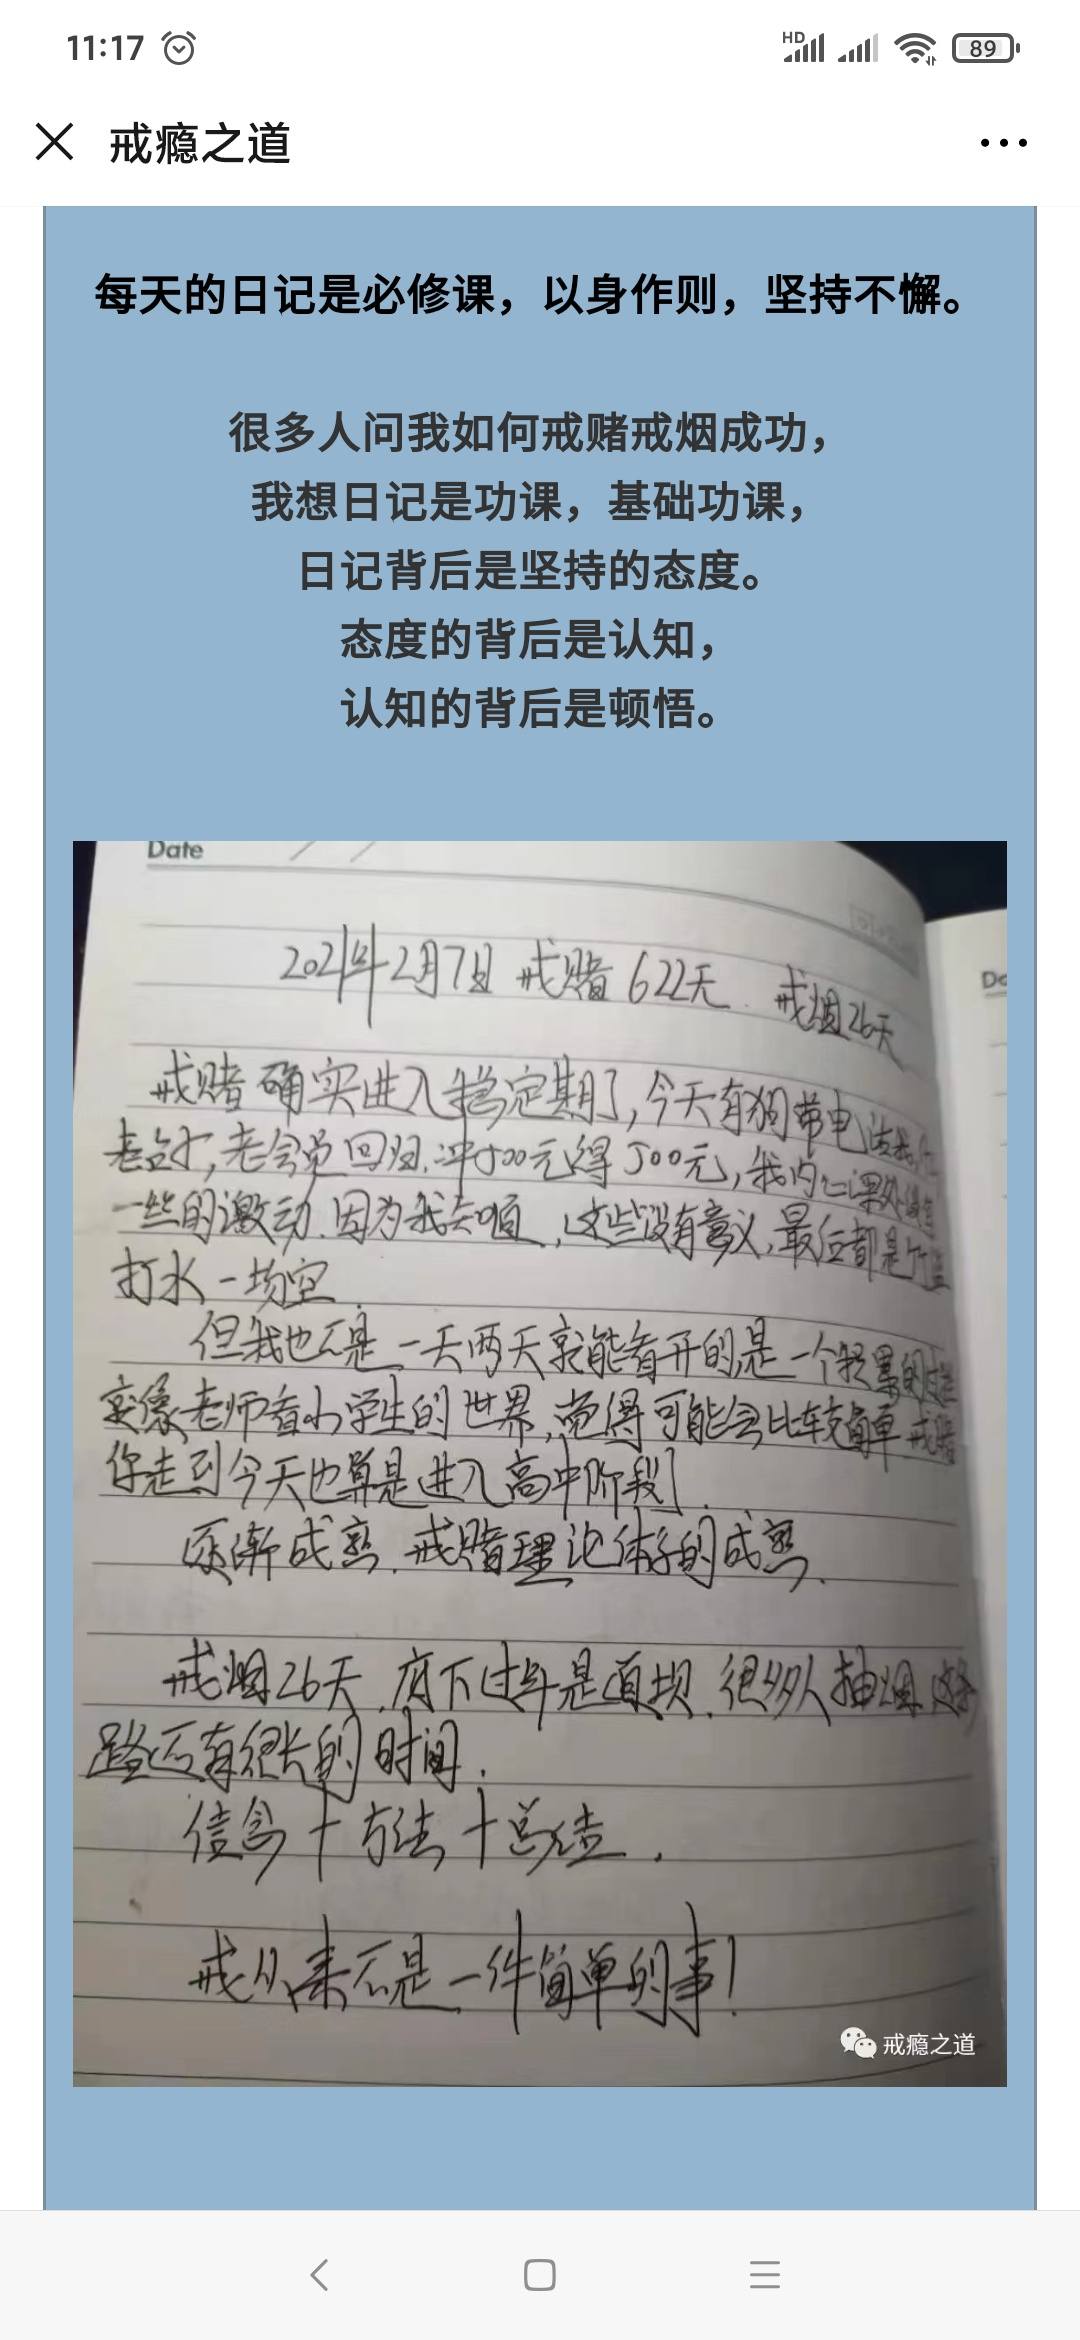 11:17
HD
89
戒瘾之道
每天的日记是必修课，以身作则，坚持不懈。
很多人问我如何戒赌戒烟成功，
我想日记是功课，基础功课，
日记背后是坚持的态度。
态度的背后是认知，
认知的背后是顿悟。
Date
2021年2月7日 戒赌622天. 戒烟26天
戒赌确实进入稳定期了,今天有狗带电话我,
老会员回归.冲500元得500元,我内心深处没有
一丝的激动.因为我知道,这些没有意义,最后都是竹篮
打水一场空.
但我也不是一天两天就能看开的是一个积累的过程
就像老师看小学生的世界,觉得可能会比较简单 戒赌
你走到今天也算是进入高中阶段了.
逐渐成熟.戒赌理论体系的成熟.
戒烟26天.底下过年是道坝.很多人抽烟.这条
路还有很长的时间.
信念+方法+总结.
戒从来不是一件简单的事!
戒瘾之道